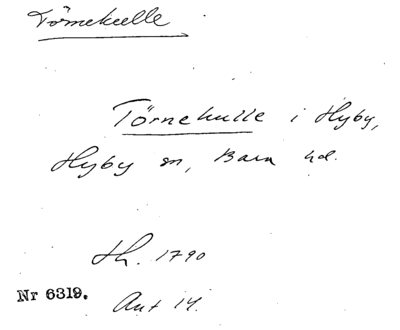 Törnekulle
Törnekulle i Hyby,
Hyby sn, Bara hd.
Th. 1790
Nr 6319.
Ant 14.